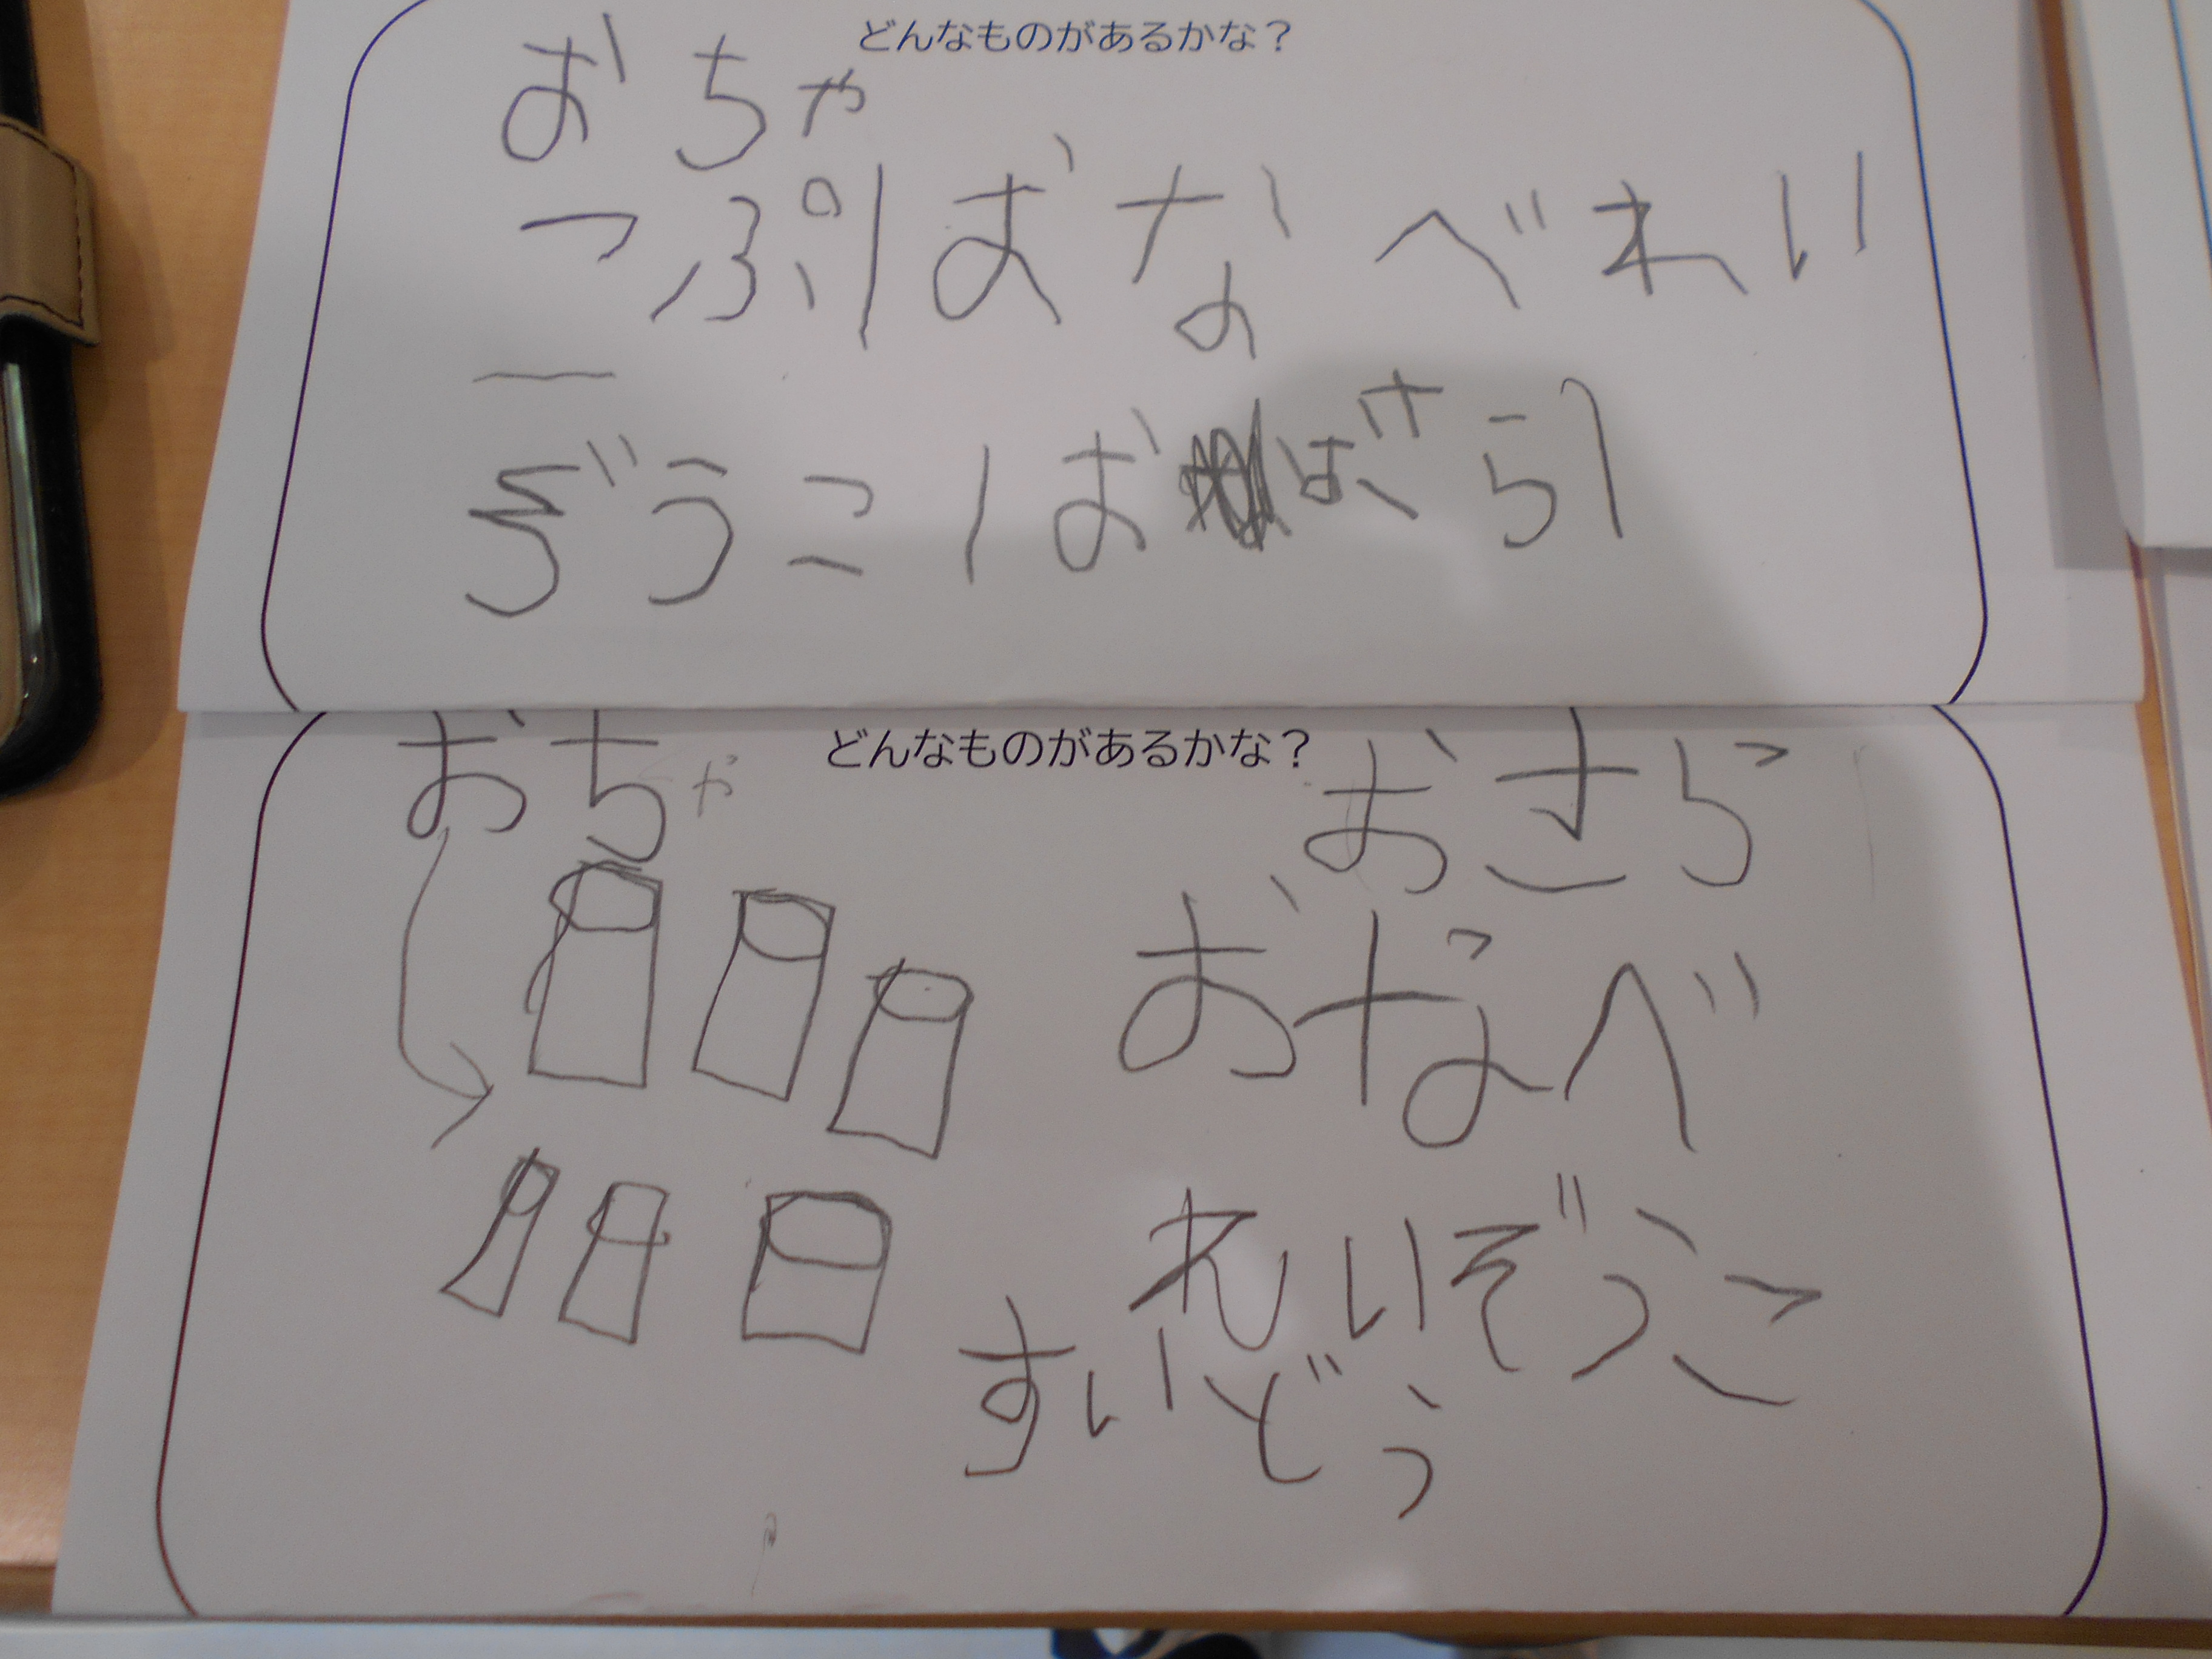 どんなものがあるかな？
おちゃ
っぷ|おなべれい
ぞうこ|おさら|
どんなものがあるかな？
おちゃ
おさら
おなべ
れいぞうこ
すいどう